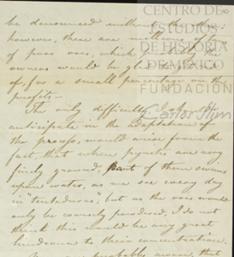 be denounced
however, these are
of poor ores, which
owners would be glad
of, for a small percentage on the
profits—
The only difficulty I
anticipate in the adoption of
the process, would arise from the
fact, that where pyrites are very
finely ground, part of them swims
upon water, as we see every day
in "tentaduras", but as the ores would
only be coarsely powdered, I do not
think this would be any great
hindrance to their concentration.
probably aware, that
CENTRO DE
ESTUDIOS
DE HISTORIA
DE MÉXICO
Carlos Slim
FUNDACIÓN